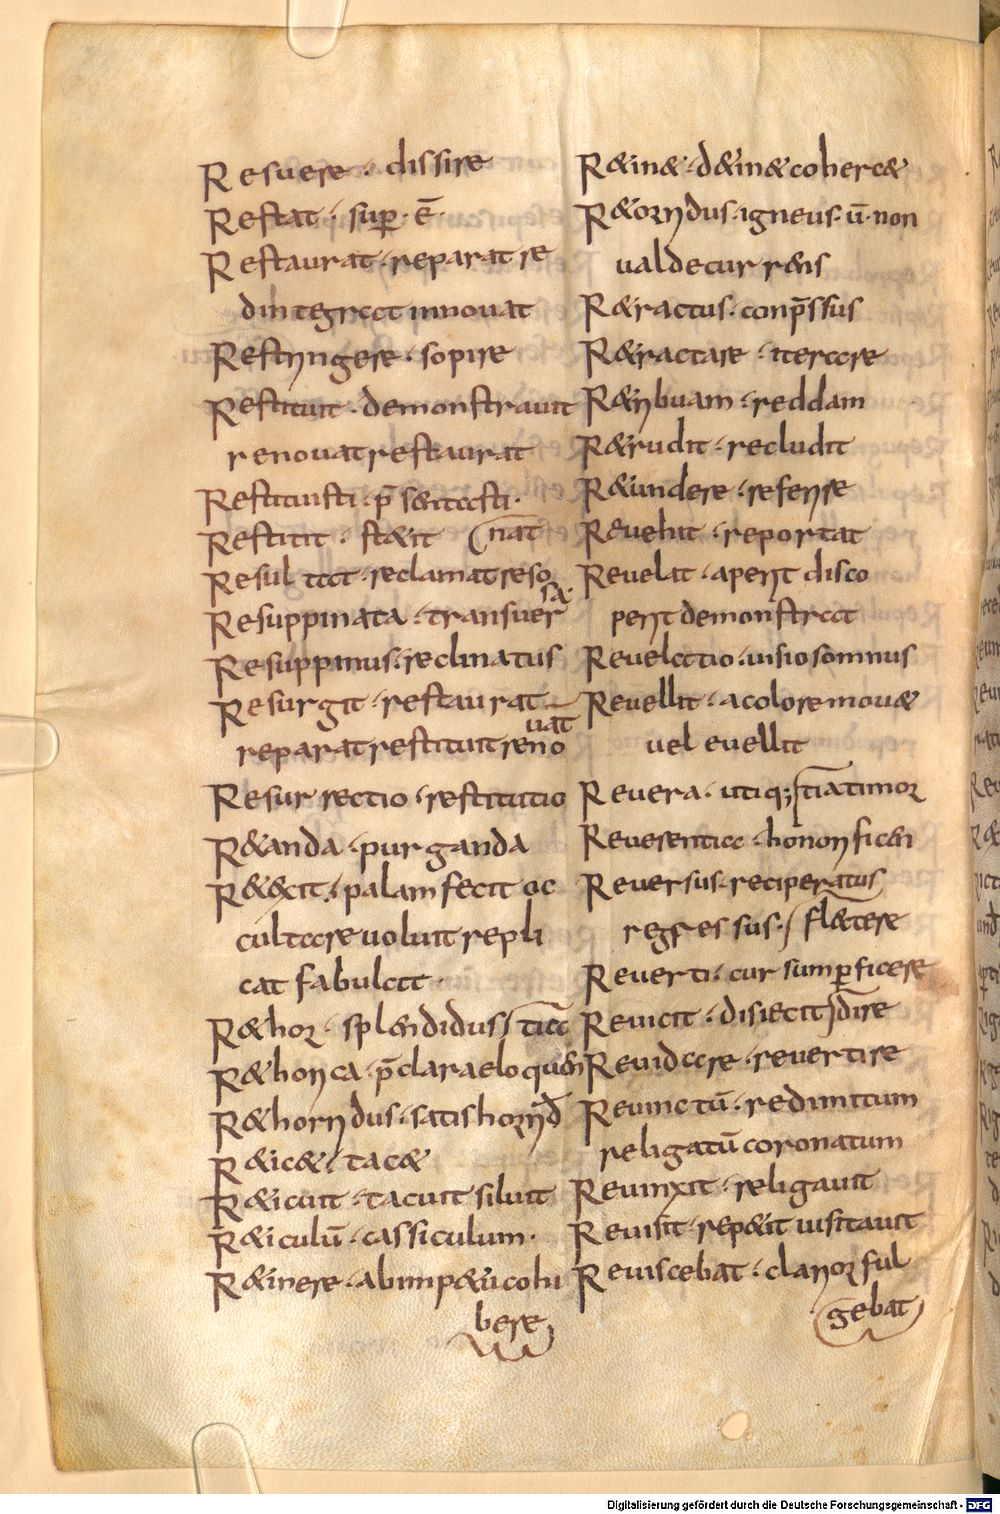 Resuere · dissire
Restat · sup̄ · ē ·
Restaurat · reparat re
dintegrat innouat
Restringere · sopire
Restituit · demonstrauit
renouat restaurat
Restituisti · p̄sentasti ·
Restitit · stetit
Resultat · reclamat reso
nat
Resuppinata · transuer
sa ·
Resuppinus · reclinatus
Resurgit · restaurat
reparat restituit reno
uat
Resurrectio · restitutio
R&anda · purganda
R&exit · palam fecit oc
cultare uoluit repli
cat fabulat ·
R&hor · splendidus
R&horica · p̄clara eloquen
tia
R&horridus · satis horrid
R&ic& · tac&
R&icuit · tacuit siluit
R&iculū · cassiculum ·
R&inere · ab imp&u cohi
bere
R&in& · d&in& coherc&
R&orridus · igneus · ū · non
ualde currens
R&ractus · conp̄ssus
R&ractare · iterare
R&ribuam · reddam
R&rudit · recludit
R&undere · referire
Reuehit · reportat
Reuelat · aperit disco
perit demonstrat
Reuelatio · uisio somnus
Reuellit · a colore mou&
uel euellit
Reuera · utiq;
Reuerentia · honorificen
tia timor
Reuersus · reciperatus
regressus ·
Reuerti · cursum perficere
flectere
Reuicit · disiecit
Reuidare · reuertire
dire
Reuinctū · redimitum
religatū coronatum
Reuinxit · religauit
Reuisit · rep&it uisitauit
Reuiscebat · clarior ful
gebat
Digitalisierung gefördert durch die Deutsche Forschungsgemeinschaft - DFG